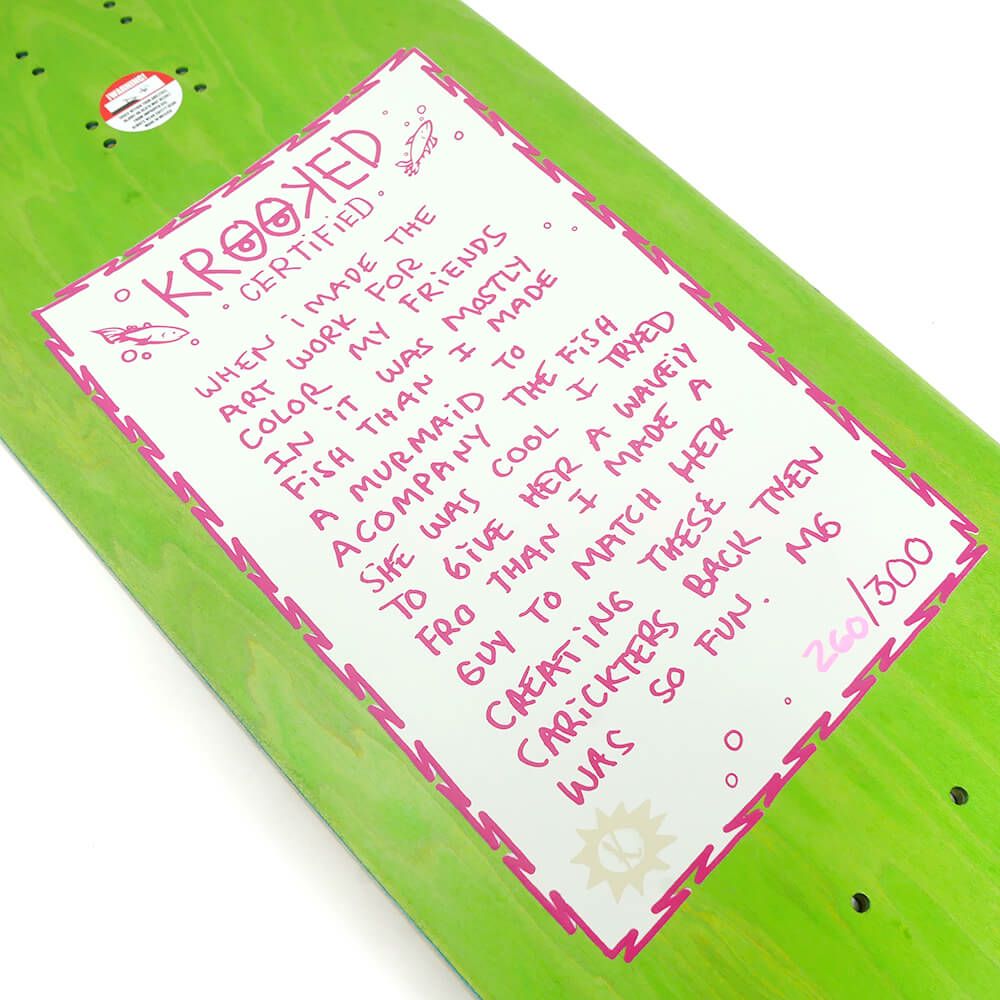 WARNING!
KROOKED
CERTiFiED
WHEN i MADE THE
ART WORK FOR
COLOR MY FRIENDS
IN IT WAS MOSTLY
FiSH THAN I MADE
A MURMAiD TO
ACOMPANY THE FiSH
SHE WAS COOL I TRYED
TO GiVE HER A WAVEiY
FRO THAN I MADE A
GUY TO MATCH HER
CREATiNG THESE
CARiCKTERS BACK THEN
WAS SO FUN. MG
260/300
K